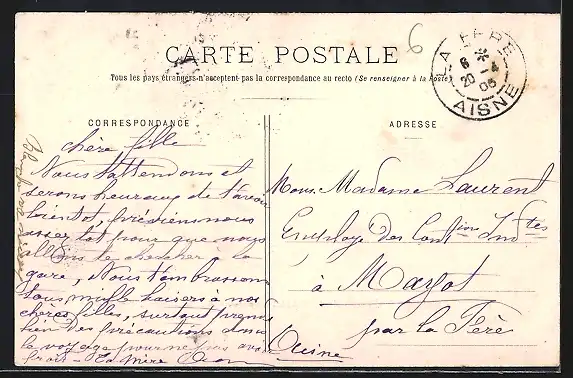 CARTE POSTALE
Tous les pays étrangers n'acceptent pas la correspondance au recto (Se renseigner à la Poste)
6
LA FERE
8 * 20 -4 06
AISNE
CORRESPONDANCE
ADRESSE
chère fille
Nous t'attendons et
serons heureux de t'avoir
bientôt, préviens nous
assez tôt pour que nous
allions te chercher la
gare, Nous t'embrassons
tous mille baisers a nos
chères filles, surtout prends
bien des précautions dans
le voyage pour ne pas avoir
froid - ta Mère
Mons. Madame Laurent
Employé des Con
à Mayot
par la Fère
Aisne